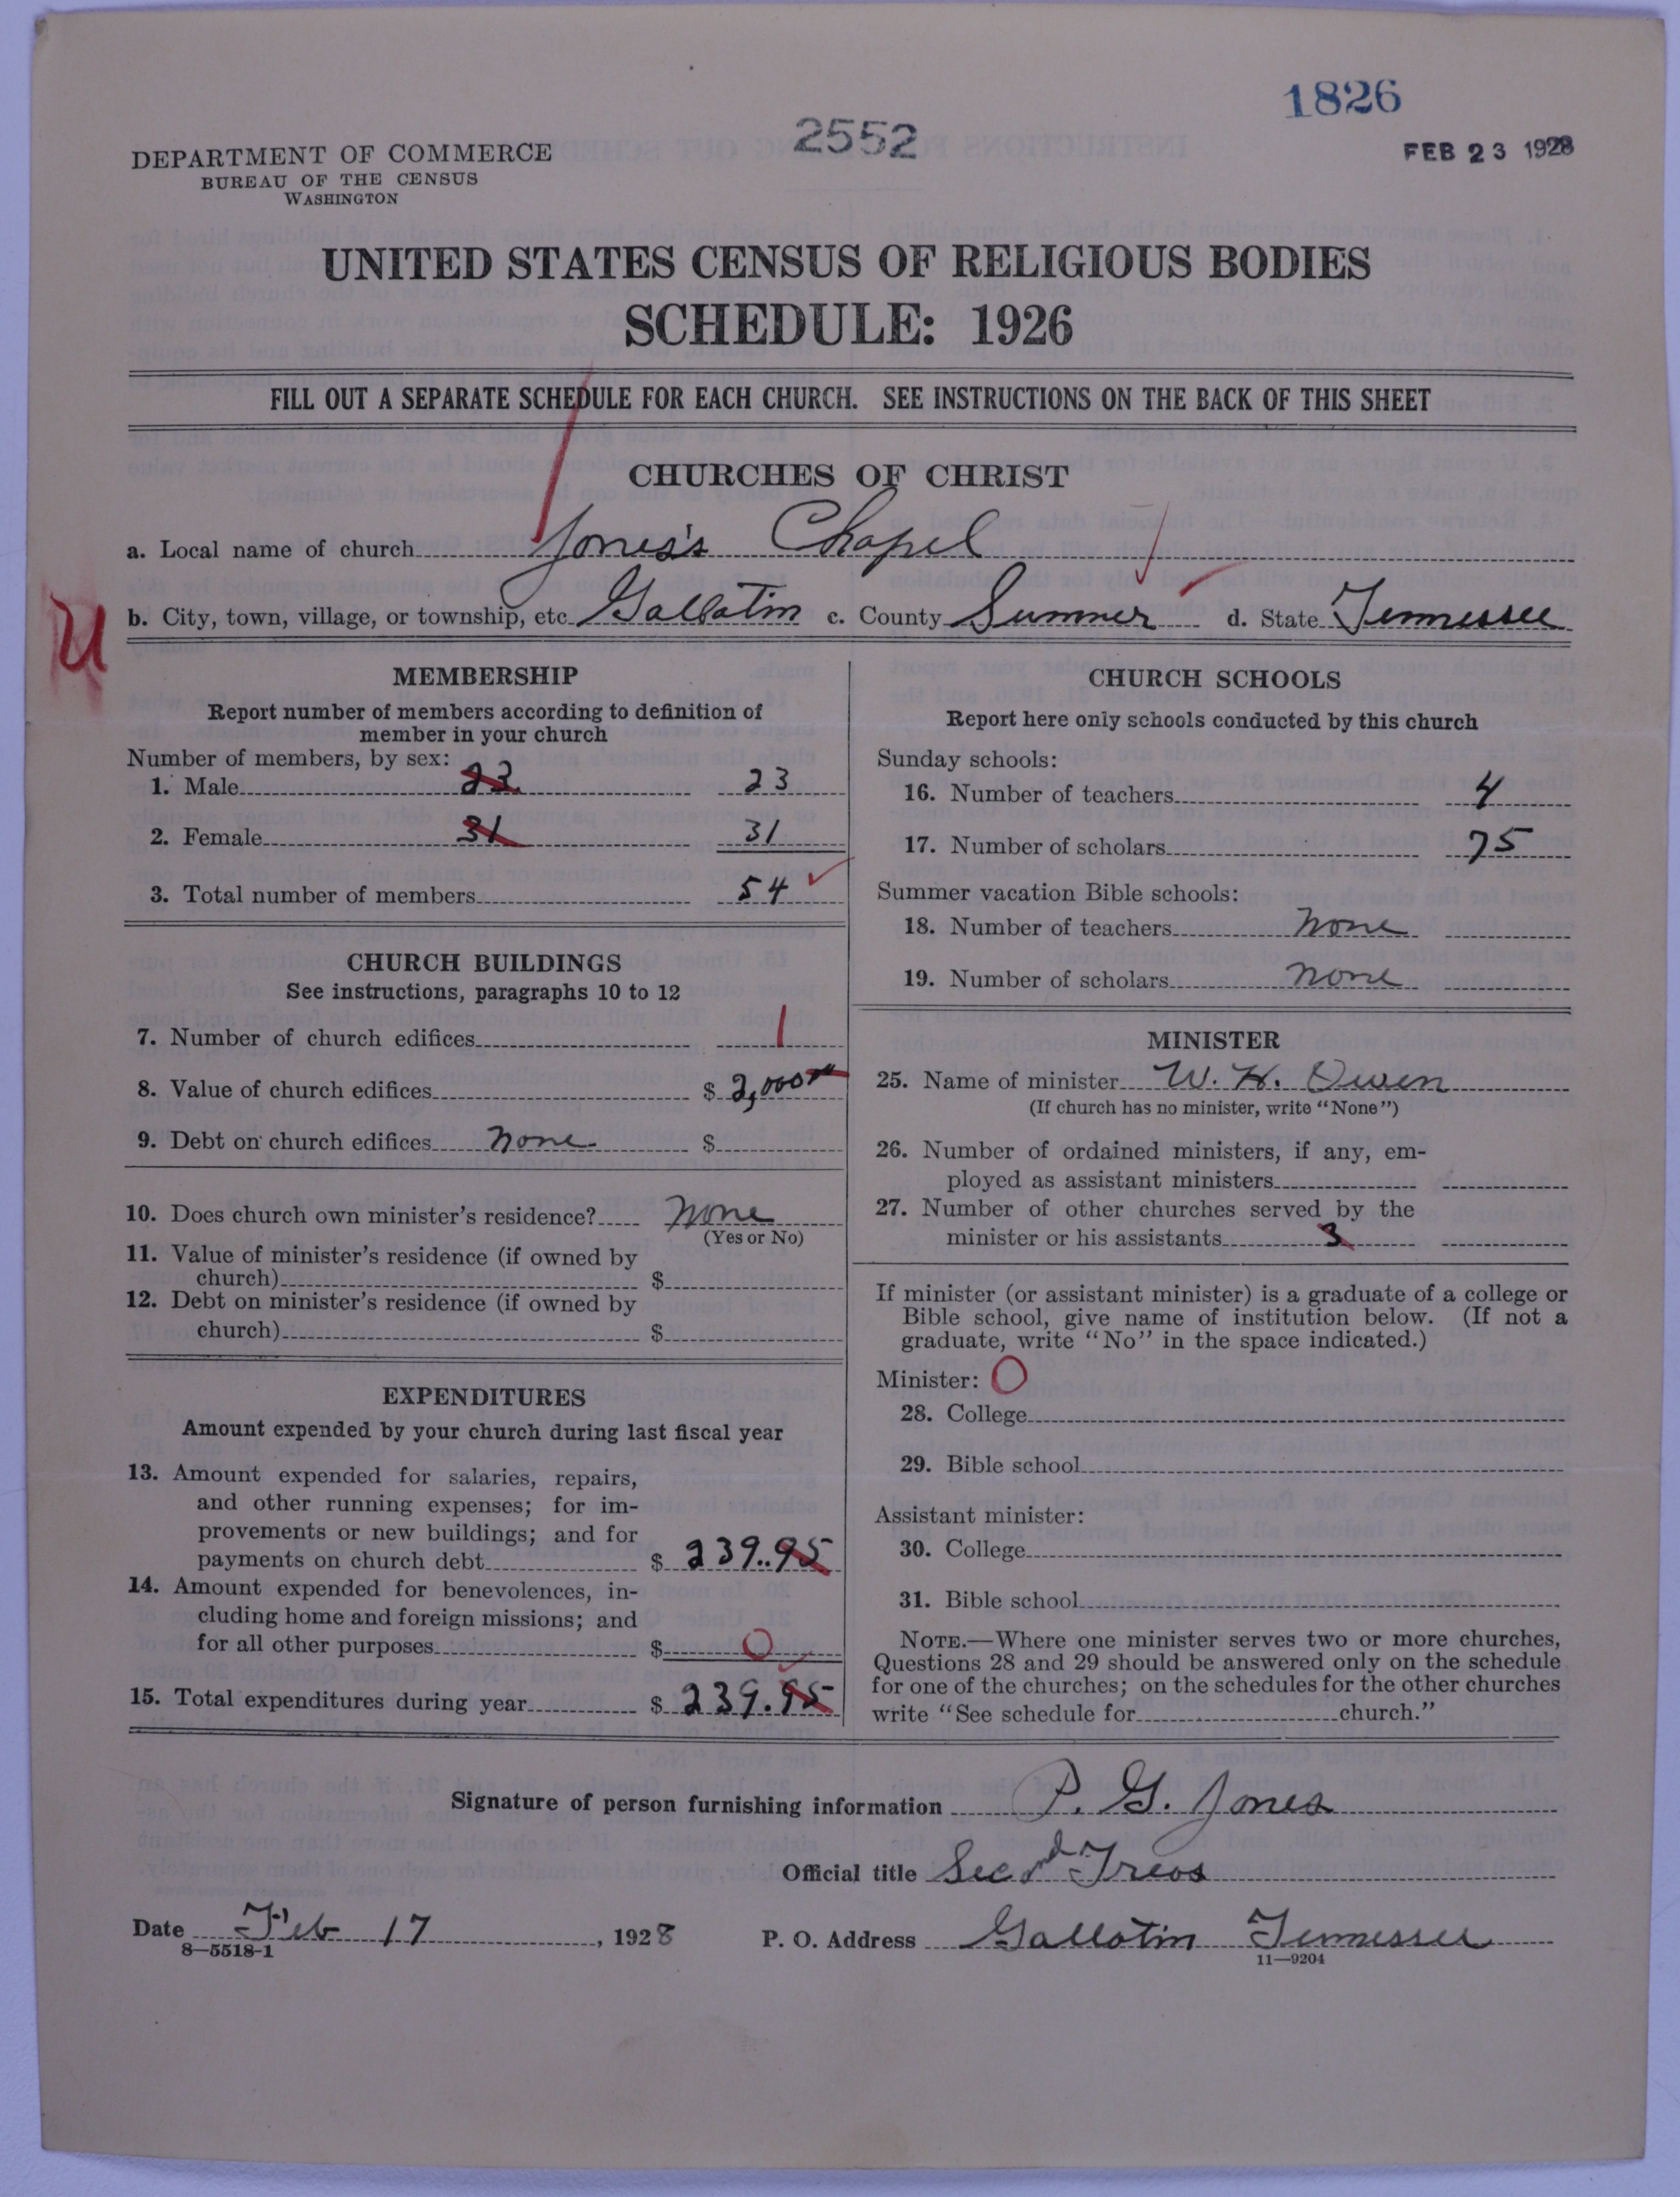 1826
2552
FEB 23 1928
DEPARTMENT OF COMMERCE
BUREAU OF THE CENSUS
WASHINGTON
UNITED STATES CENSUS OF RELIGIOUS BODIES
SCHEDULE: 1926
FILL OUT A SEPARATE SCHEDULE FOR EACH CHURCH. SEE INSTRUCTIONS ON THE BACK OF THIS SHEET
CHURCHES OF CHRIST
a. Local name of church Jones's Chapel
b. City, town, village, or township, etc. Gallatin c. County Sumner d. State Tennessee
U
MEMBERSHIP
Report number of members according to definition of
member in your church
Number of members, by sex:
1. Male 23 23
2. Female 31 31
3. Total number of members 54
CHURCH BUILDINGS
See instructions, paragraphs 10 to 12
7. Number of church edifices 1
8. Value of church edifices $ 2,000
9. Debt on church edifices none $
10. Does church own minister's residence? none
(Yes or No)
11. Value of minister's residence (if owned by
church) $
12. Debt on minister's residence (if owned by
church) $
EXPENDITURES
Amount expended by your church during last fiscal year
13. Amount expended for salaries, repairs,
and other running expenses; for im-
provements or new buildings; and for
payments on church debt $ 239.95
14. Amount expended for benevolences, in-
cluding home and foreign missions; and
for all other purposes $ 0
15. Total expenditures during year $ 239.95
CHURCH SCHOOLS
Report here only schools conducted by this church
Sunday schools:
16. Number of teachers 4
17. Number of scholars 75
Summer vacation Bible schools:
18. Number of teachers none
19. Number of scholars none
MINISTER
25. Name of minister W. H. Owen
(If church has no minister, write "None")
26. Number of ordained ministers, if any, em-
ployed as assistant ministers
27. Number of other churches served by the
minister or his assistants 3
If minister (or assistant minister) is a graduate of a college or
Bible school, give name of institution below. (If not a
graduate, write "No" in the space indicated.)
Minister: O
28. College
29. Bible school
Assistant minister:
30. College
31. Bible school
NOTE.—Where one minister serves two or more churches,
Questions 28 and 29 should be answered only on the schedule
for one of the churches; on the schedules for the other churches
write "See schedule for church."
Signature of person furnishing information P. G. Jones
Official title Sec nd Treas
Date Feb 17, 1928 P. O. Address Gallatin Tennessee
8—5518-1
11—9204